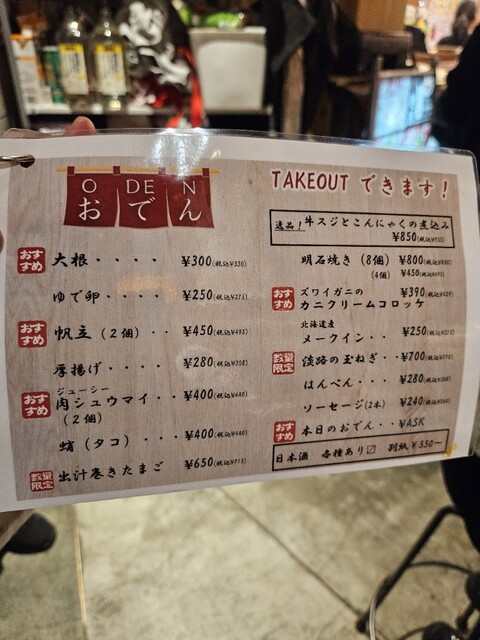 ODEN
おでん
おすすめ 大根・・・・ ¥300(税込¥330)
ゆで卵・・・・ ¥250(税込¥275)
おすすめ 帆立(2個)・・ ¥450(税込¥495)
厚揚げ・・・・ ¥280(税込¥308)
ジューシー
おすすめ 肉シュウマイ・・・ ¥400(税込¥440)
(2個)
蛸(タコ)・・・ ¥400(税込¥440)
数量限定 出汁巻きたまご ¥650(税込¥715)
TAKEOUT できます!
逸品! 牛スジとこんにゃくの煮込み
¥850(税込¥935)
明石焼き(8個) ¥800(税込¥880)
(4個) ¥450(税込¥495)
おすすめ ズワイガニの ¥390(税込¥429)
カニクリームコロッケ
北海道産
メークイン・・ ¥250(税込¥275)
数量限定 淡路の玉ねぎ・・ ¥700(税込¥770)
はんぺん・・・ ¥280(税込¥308)
ソーセージ(2本) ¥240(税込¥264)
おすすめ 本日のおでん・・¥ASK
日本酒 各種あり〼 別紙¥550~